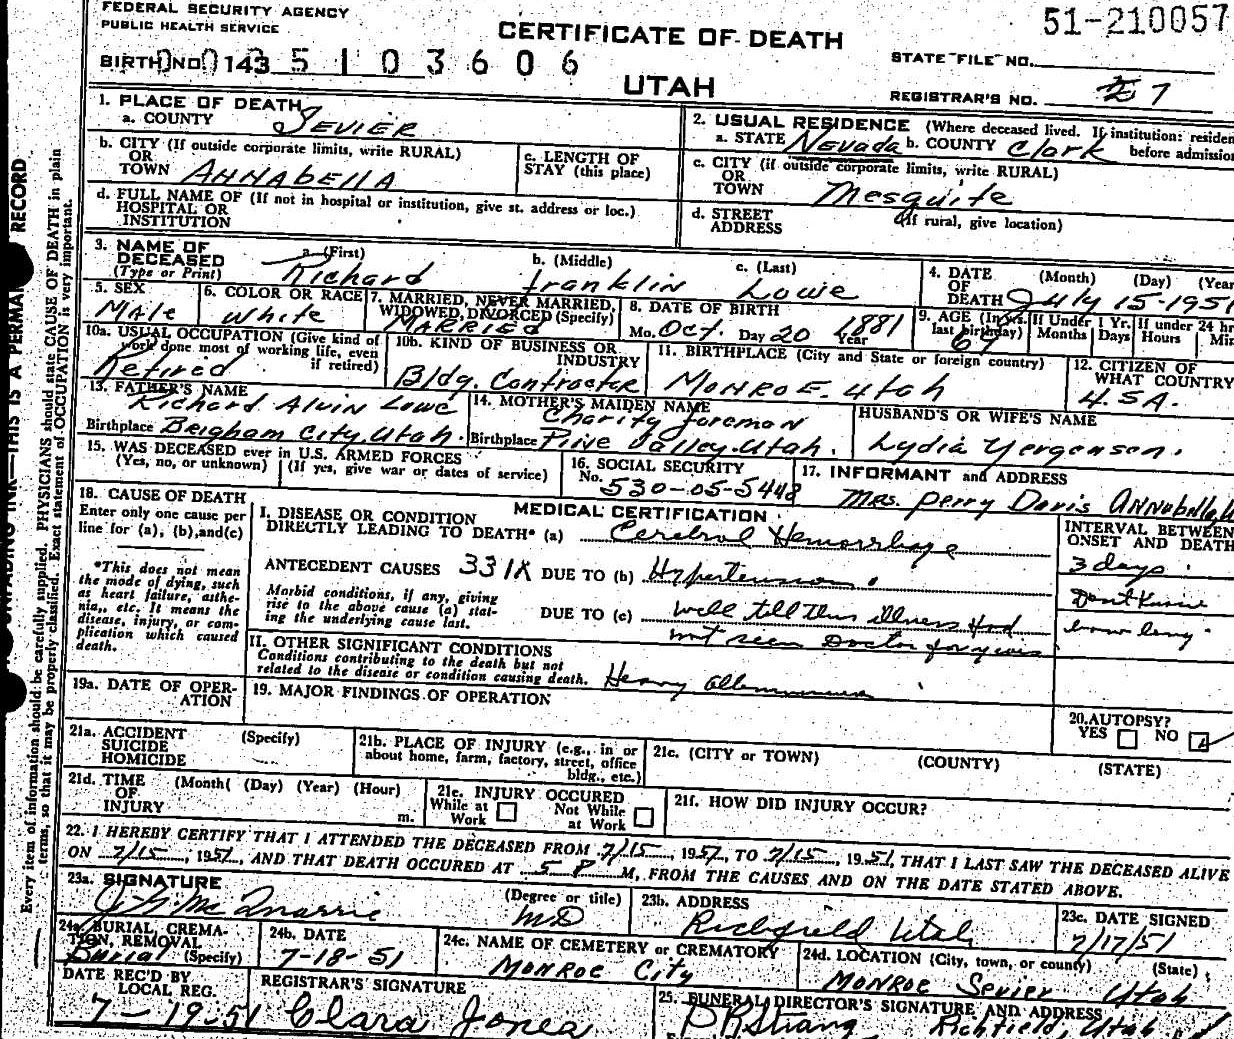 FEDERAL SECURITY AGENCY
PUBLIC HEALTH SERVICE
CERTIFICATE OF DEATH
51-210057
BIRTH NO. 0143 5 1 0 3 6 0 6
UTAH
STATE FILE NO.
REGISTRAR'S NO. 7
1. PLACE OF DEATH
a. COUNTY SEVIER
2. USUAL RESIDENCE (Where deceased lived. If institution: residen
a. STATE Nevada b. COUNTY Clark before admission
b. CITY (If outside corporate limits, write RURAL)
OR
TOWN ANNABELLA
c. LENGTH OF
STAY (this place)
c. CITY (if outside corporate limits, write RURAL)
OR
TOWN Mesquite
d. FULL NAME OF (If not in hospital or institution, give st. address or loc.)
HOSPITAL OR
INSTITUTION
d. STREET (If rural, give location)
ADDRESS
3. NAME OF
DECEASED
(Type or Print)
a. (First) b. (Middle) c. (Last)
Richard Franklin Lowe
4. DATE (Month) (Day) (Year
OF
DEATH July 15-1951
5. SEX
Male
6. COLOR OR RACE
White
7. MARRIED, NEVER MARRIED,
WIDOWED, DIVORCED (Specify)
MARRIED
8. DATE OF BIRTH
Mo. Oct. Day 20 Year 1881
9. AGE (In yrs. last birthday) 69
If Under 1 Yr. Months Days
If under 24 hr Hours Min
10a. USUAL OCCUPATION (Give kind of
work done most of working life, even
if retired)
Retired
10b. KIND OF BUSINESS OR
INDUSTRY
Bldg. Contractor
11. BIRTHPLACE (City and State or foreign country)
MONROE. Utah
12. CITIZEN OF
WHAT COUNTRY
U.S.A.
13. FATHER'S NAME
Richard Alvin Lowe
Birthplace Brigham City, Utah.
14. MOTHER'S MAIDEN NAME
Charity Foreman
Birthplace Pine Valley, Utah.
HUSBAND'S OR WIFE'S NAME
Lydia Yergensen.
15. WAS DECEASED ever in U.S. ARMED FORCES
(Yes, no, or unknown) (If yes, give war or dates of service)
16. SOCIAL SECURITY
No. 530-05-5448
17. INFORMANT and ADDRESS
Mrs. Perry Davis Annabella, U
18. CAUSE OF DEATH
Enter only one cause per
line for (a), (b), and (c)
*This does not mean
the mode of dying, such
as heart failure, asthe-
nia, etc. It means the
disease, injury, or com-
plication which caused
death.
MEDICAL CERTIFICATION
I. DISEASE OR CONDITION
DIRECTLY LEADING TO DEATH* (a) Cerebral Hemorrhage
ANTECEDENT CAUSES 331X DUE TO (b) Hypertension
Morbid conditions, if any, giving
rise to the above cause (a) stat-
ing the underlying cause last.
DUE TO (c) well till this illness Had
not seen Doctor for years
INTERVAL BETWEEN
ONSET AND DEATH
3 days
Dont Know
how long
II. OTHER SIGNIFICANT CONDITIONS
Conditions contributing to the death but not
related to the disease or condition causing death. Heavy
19a. DATE OF OPER-
ATION
19. MAJOR FINDINGS OF OPERATION
20. AUTOPSY?
YES NO
21a. ACCIDENT (Specify)
SUICIDE
HOMICIDE
21b. PLACE OF INJURY (e.g., in or
about home, farm, factory, street, office
bldg., etc.)
21c. (CITY or TOWN) (COUNTY) (STATE)
21d. TIME (Month) (Day) (Year) (Hour)
OF
INJURY m.
21e. INJURY OCCURED
While at Work Not While at Work
21f. HOW DID INJURY OCCUR?
22. I HEREBY CERTIFY THAT I ATTENDED THE DECEASED FROM 7/15, 1951, TO 7/15, 1951, THAT I LAST SAW THE DECEASED ALIVE
ON 7/15, 1951, AND THAT DEATH OCCURED AT 5 P M, FROM THE CAUSES AND ON THE DATE STATED ABOVE.
23a. SIGNATURE (Degree or title)
McQuarrie MD
23b. ADDRESS
Richfield Utah
23c. DATE SIGNED
7/17/51
24a. BURIAL, CREMA-
TION, REMOVAL
(Specify)
Burial
24b. DATE
7-18-51
24c. NAME OF CEMETERY or CREMATORY
MONROE City
24d. LOCATION (City, town, or county) (State)
MONROE Sevier Utah
DATE REC'D BY
LOCAL REG.
7-19-51
REGISTRAR'S SIGNATURE
Clara Jones
25. FUNERAL DIRECTOR'S SIGNATURE AND ADDRESS
Strang Richfield, Utah
UNFADING INK—THIS IS A PERMA RECORD
Every item of information should be carefully supplied. PHYSICIANS should state CAUSE OF DEATH in plain
terms, so that it may be properly classified. Exact statement of OCCUPATION is very important.